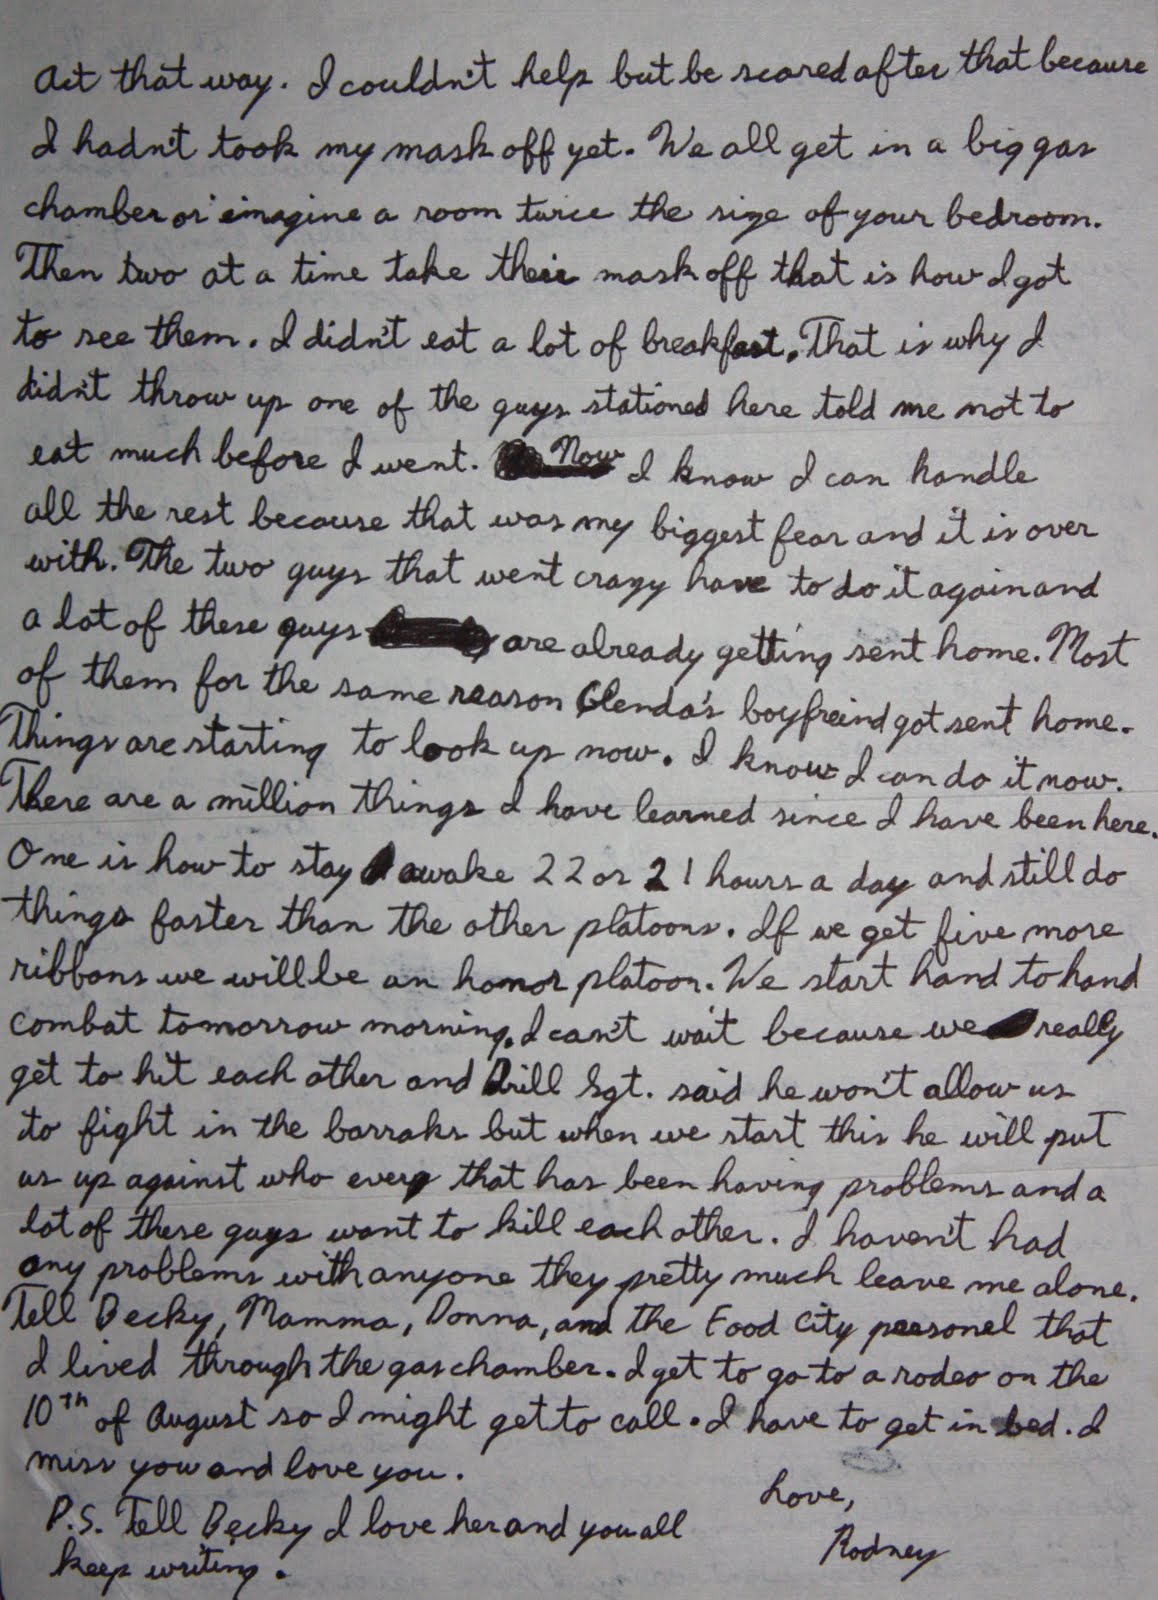 Act that way. I couldn't help but be scared after that because
I hadn't took my mask off yet. We all get in a big gas
chamber or imagine a room twice the size of your bedroom.
Then two at a time take their mask off that is how I got
to see them. I didn't eat a lot of breakfast. That is why I
didn't throw up one of the guys stationed here told me not to
eat much before I went. Now I know I can handle
all the rest because that was my biggest fear and it is over
with. The two guys that went crazy have to do it again and
a lot of these guys are already getting sent home. Most
of them for the same reason Glenda's boyfreind got sent home.
Things are starting to look up now. I know I can do it now.
There are a million things I have learned since I have been here.
One is how to stay awake 22 or 21 hours a day and still do
things faster than the other platoons. If we get five more
ribbons we will be an honor platoon. We start hand to hand
combat tomorrow morning. I can't wait because we really
get to hit each other and Drill Sgt. said he won't allow us
to fight in the barraks but when we start this he will put
us up against who every that has been having problems and a
lot of these guys want to kill each other. I haven't had
any problems with anyone they pretty much leave me alone.
Tell Becky, Mamma, Donna, and the Food City peesonel that
I lived through the gas chamber. I get to go to a rodeo on the
10th of August so I might get to call. I have to get in bed. I
miss you and love you.
Love,
Rodney
P.S. Tell Becky I love her and you all
keep writing.